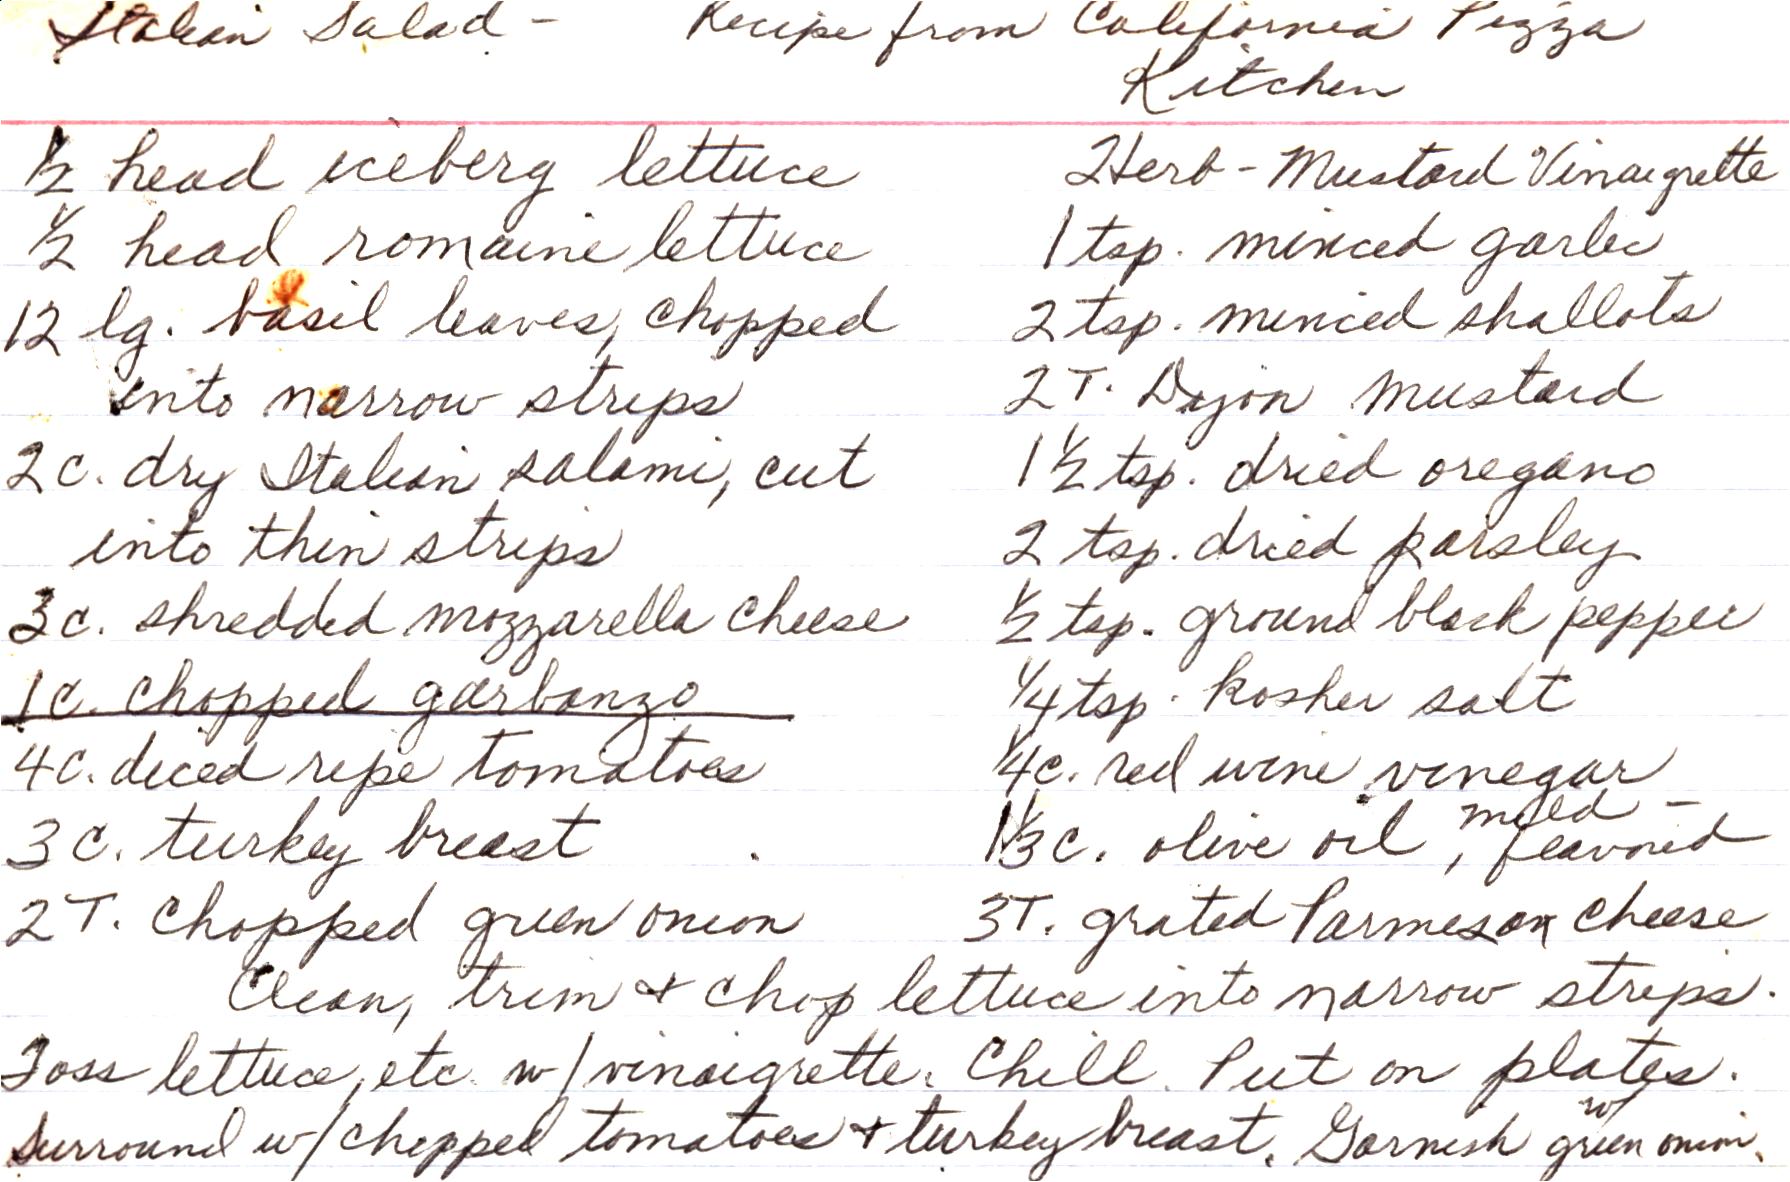 Italian Salad - Recipe from California Pizza
Kitchen
½ head iceberg lettuce
½ head romaine lettuce
12 lg. basil leaves, chopped
into narrow strips
2 c. dry Italian salami, cut
into thin strips
3 c. shredded mozzarella cheese
1 c. chopped garbanzo
4 c. diced ripe tomatoes
3 c. turkey breast
2 T. chopped green onion
Herb-Mustard Vinaigrette
1 tsp. minced garlic
2 tsp. minced shallots
2 T. Dijon mustard
1 ½ tsp. dried oregano
2 tsp. dried parsley
½ tsp. ground black pepper
¼ tsp. kosher salt
¼ c. red wine vinegar
1 ⅓ c. olive oil, mild-flavored
3 T. grated Parmesan cheese
Clean, trim & chop lettuce into narrow strips.
Toss lettuce, etc. w/ vinaigrette. Chill. Put on plates.
Surround w/ chopped tomatoes & turkey breast. Garnish w/ green onion.